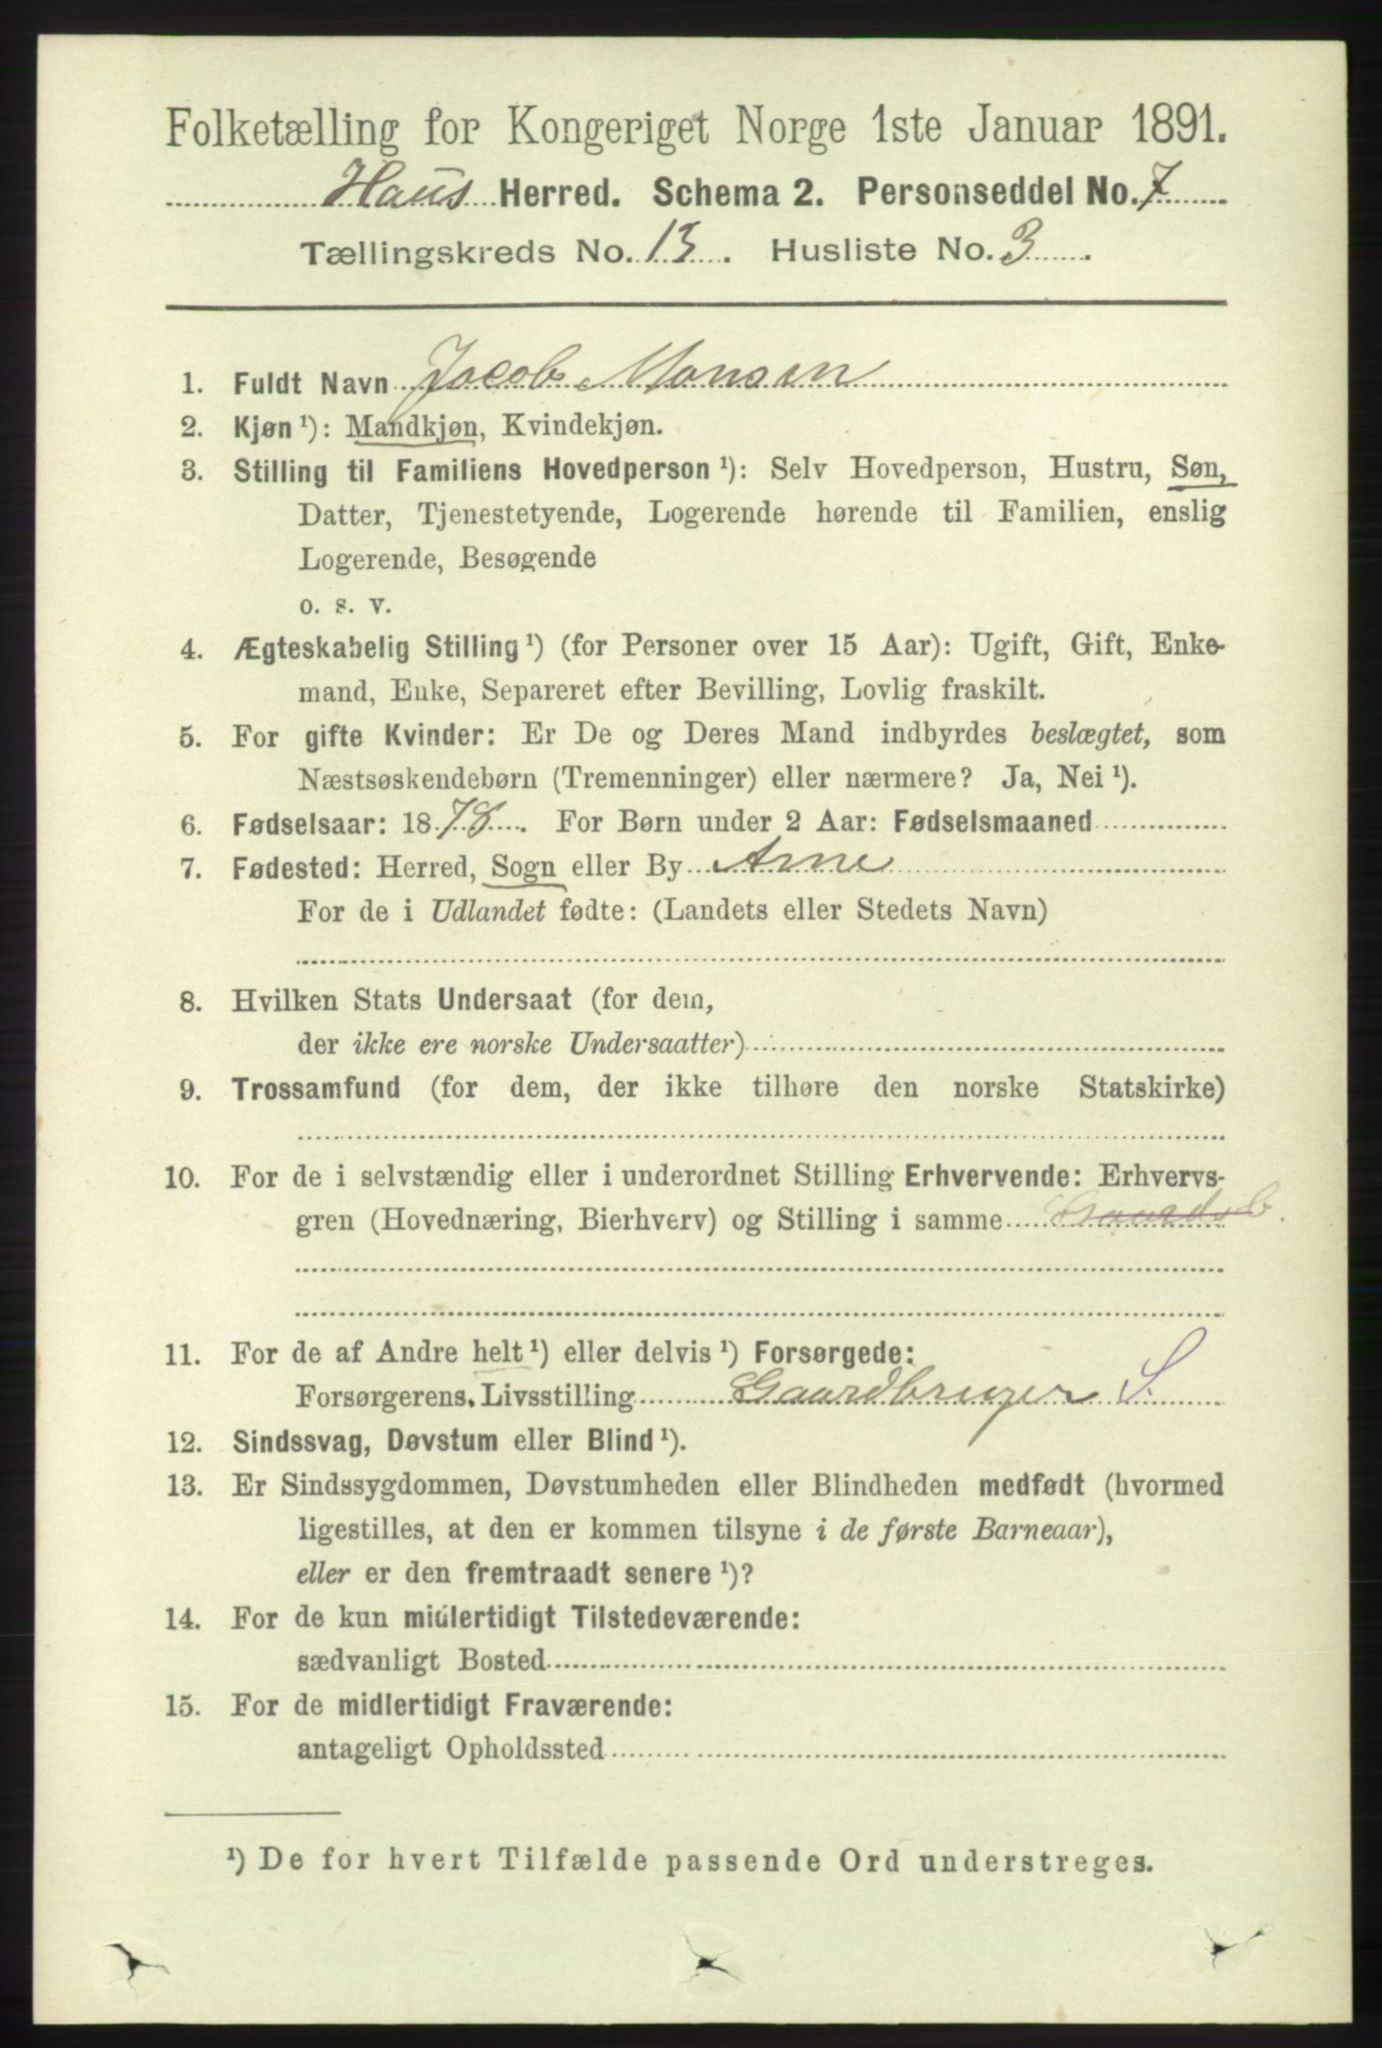 Folketælling for Kongeriget Norge 1ste Januar 1891.
Haus Herred. Schema 2. Personseddel No. 7
Tællingskreds No. 13. Husliste No. 3.
1. Fuldt Navn Jacob Monsen
2. Kjøn ¹): Mandkjøn, Kvindekjøn.
3. Stilling til Familiens Hovedperson ¹): Selv Hovedperson, Hustru, Søn,
Datter, Tjenestetyende, Logerende hørende til Familien, enslig
Logerende, Besøgende
o. s. v.
4. Ægteskabelig Stilling ¹) (for Personer over 15 Aar): Ugift, Gift, Enke-
mand, Enke, Separeret efter Bevilling, Lovlig fraskilt.
5. For gifte Kvinder: Er De og Deres Mand indbyrdes beslægtet, som
Næstsøskendebørn (Tremenninger) eller nærmere? Ja, Nei ¹).
6. Fødselsaar: 1878. For Børn under 2 Aar: Fødselsmaaned
7. Fødested: Herred, Sogn eller By Arne
For de i Udlandet fødte: (Landets eller Stedets Navn)
8. Hvilken Stats Undersaat (for dem,
der ikke ere norske Undersaatter)
9. Trossamfund (for dem, der ikke tilhøre den norske Statskirke)
10. For de i selvstændig eller i underordnet Stilling Erhvervende: Erhvervs-
gren (Hovednæring, Bierhverv) og Stilling i samme Gaardsb.
11. For de af Andre helt ¹) eller delvis ¹) Forsørgede:
Forsørgerens Livsstilling Gaardbruger S.
12. Sindssvag, Døvstum eller Blind ¹).
13. Er Sindssygdommen, Døvstumheden eller Blindheden medfødt (hvormed
ligestilles, at den er kommen tilsyne i de første Barneaar),
eller er den fremtraadt senere ¹)?
14. For de kun midlertidigt Tilstedeværende:
sædvanligt Bosted
15. For de midlertidigt Fraværende:
antageligt Opholdssted
¹) De for hvert Tilfælde passende Ord understreges.